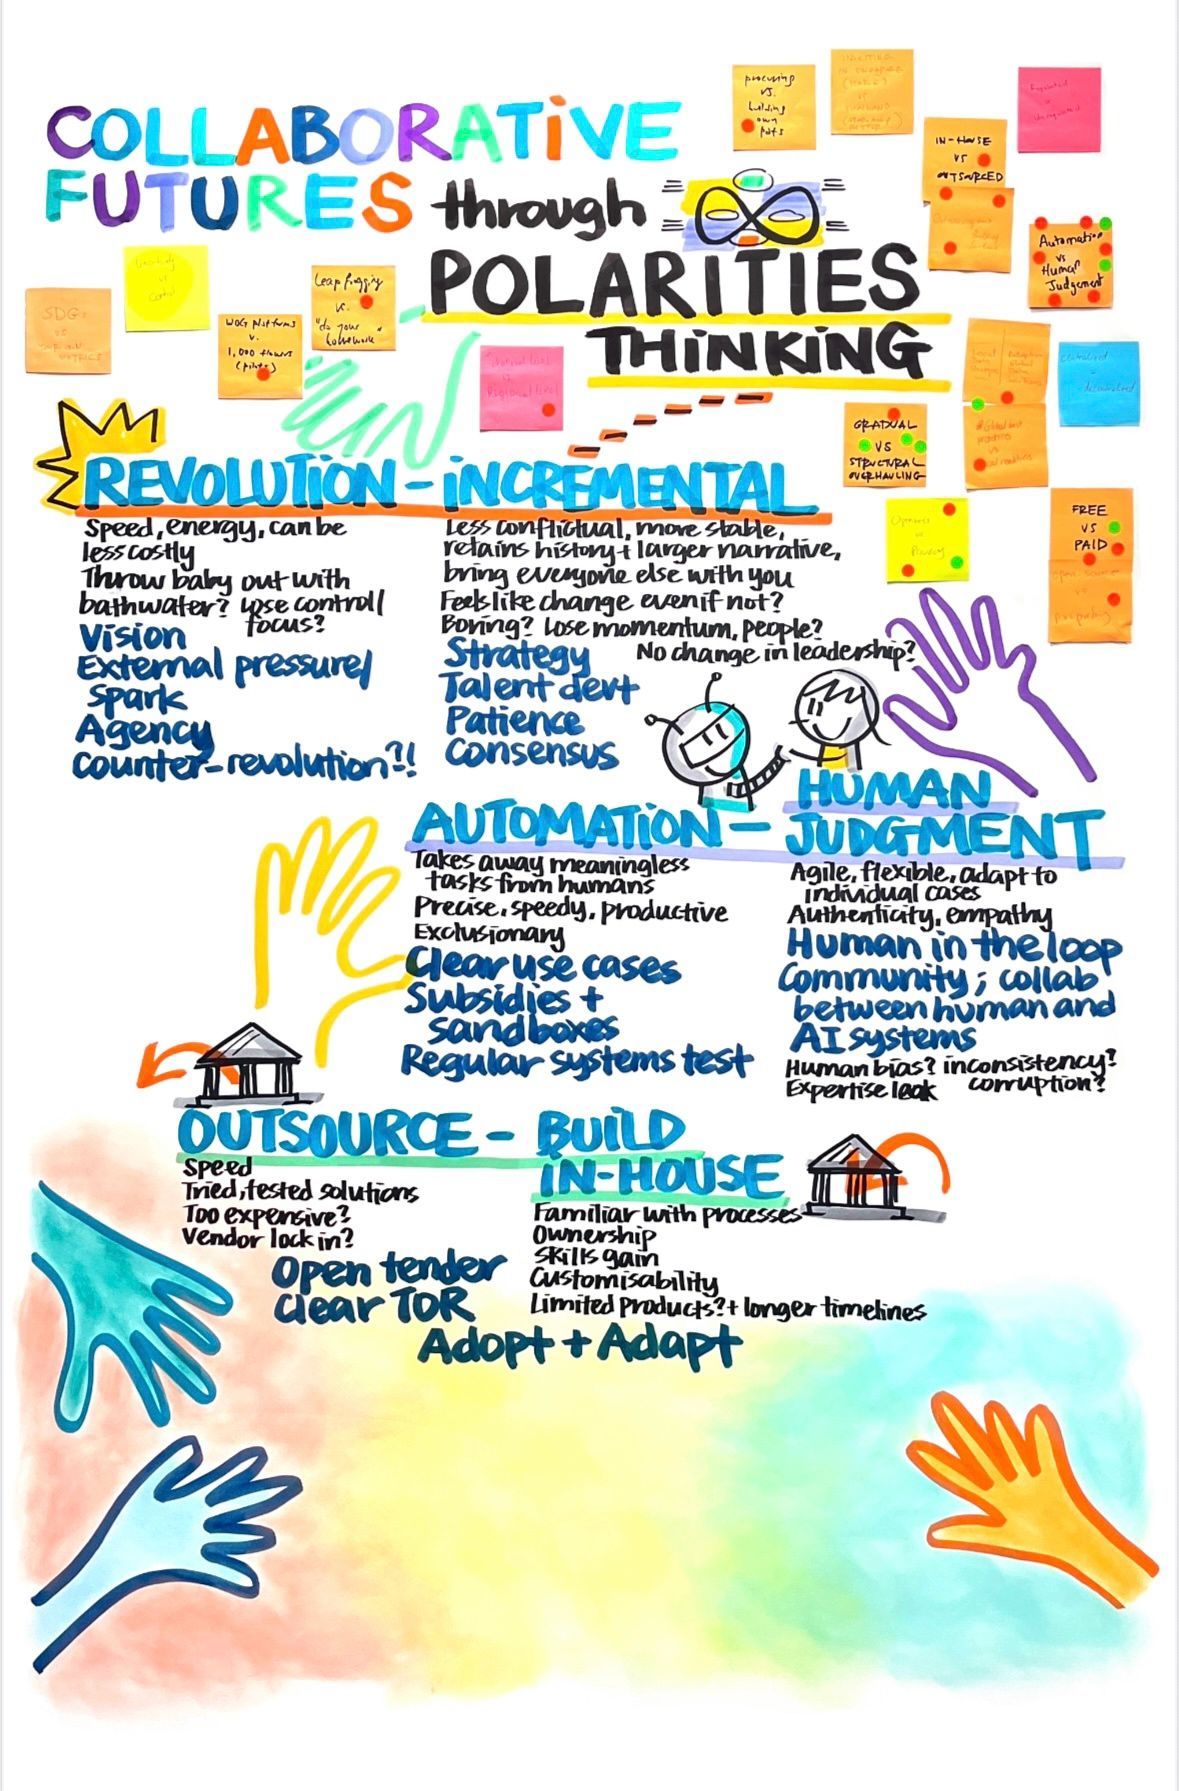 COLLABORATIVE
FUTURES through
POLARITIES
THINKING
procuring
vs.
building
own
IN-HOUSE
VS
OUTSOURCED
Automation
vs
Human
Judgement
Leap frogging
vs.
"do your
homework"
WOG platforms
v.
1,000 flowers
(pilots)
SDGs
vs
Regional level
centralised
decentralised
GRADUAL
VS
STRUCTURAL
OVERHAULING
Openness
vs
Privacy
FREE
VS
PAID
open source
vs
Proprietary
REVOLUTION - INCREMENTAL
Speed, energy, can be
less costly
Throw baby out with
bathwater? Lose control/
focus?
Vision
External pressure/
Spark
Agency
Counter-revolution?!!
Less conflictual, more stable,
retains history + larger narrative,
bring everyone else with you
Feels like change even if not?
Boring? Lose momentum, people?
No change in leadership?
Strategy
Talent devt
Patience
Consensus
AUTOMATION - HUMAN
JUDGMENT
Takes away meaningless
tasks from humans
Precise, speedy, productive
Exclusionary
Clear use cases
Subsidies +
sandboxes
Regular systems test
Agile, flexible, adapt to
individual cases
Authenticity, empathy
Human in the loop
Community; collab
between human and
AI systems
Human bias? inconsistency?
Expertise leak corruption?
OUTSOURCE - BUILD
IN-HOUSE
Speed
Tried, tested solutions
Too expensive?
Vendor lock in?
Open tender
Clear TOR
Familiar with processes
Ownership
Skills gain
Customisability
Limited products? + longer timelines
Adopt + Adapt